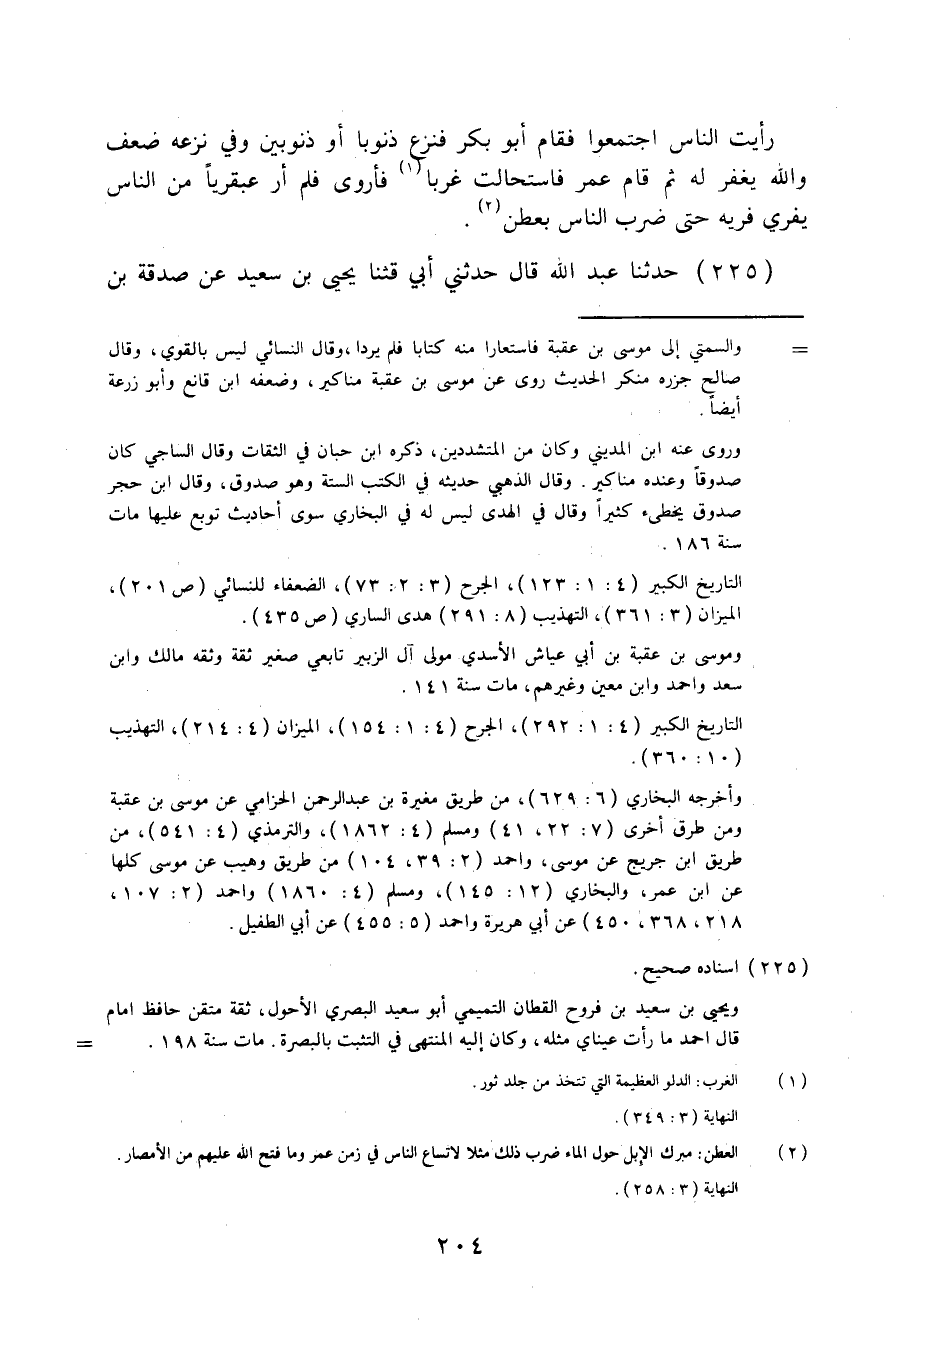 رأيت الناس اجتمعوا فقام أبو بكر فنزع ذنوبا أو ذنوبين وفي نزعه ضعف
والله يغفر له ثم قام عمر فاستحالت غربا(١) فأروى فلم أر عبقرياً من الناس
يفري فريه حتى ضرب الناس بعطن(٢) .
(٢٢٥) حدثنا عبد الله قال حدثني أبي قثنا يحيى بن سعيد عن صدقة بن
= والسمتي إلى موسى بن عقبة فاستعارا منه كتابا فلم يردا ،وقال النسائي ليس بالقوي، وقال
صالح جزره منكر الحديث روى عن موسى بن عقبة مناكير، وضعفه ابن قانع وأبو زرعة
أيضاً .
وروى عنه ابن المديني وكان من المتشددين، ذكره ابن حبان في الثقات وقال الساجي كان
صدوقاً وعنده مناكير . وقال الذهبي حديثه في الكتب الستة وهو صدوق، وقال ابن حجر
صدوق يخطىء كثيراً وقال في الهدى ليس له في البخاري سوى أحاديث توبع عليها مات
سنة ١٨٦ .
التاريخ الكبير (٤ : ١ : ١٢٣)، الجرح (٣ : ٢ : ٧٣)، الضعفاء للنسائي (ص ٢٠١)،
الميزان (٣ : ٣٦١)، التهذيب (٨ : ٢٩١) هدى الساري (ص ٤٣٥).
وموسى بن عقبة بن أبي عياش الأسدي مولى آل الزبير تابعي صغير ثقة وثقه مالك وابن
سعد واحمد وابن معين وغيرهم، مات سنة ١٤١ .
التاريخ الكبير (٤ : ١ : ٢٩٢)، الجرح (٤ : ١ : ١٥٤)، الميزان (٤ : ٢١٤)، التهذيب
(١٠ : ٣٦٠).
وأخرجه البخاري (٦ : ٦٢٩)، من طريق مغيرة بن عبدالرحمن الحزامي عن موسى بن عقبة
ومن طرق أخرى (٧ : ٢٢، ٤١) ومسلم (٤ : ١٨٦٢)، والترمذي (٤ : ٥٤١)، من
طريق ابن جريج عن موسى، واحمد (٢ : ٣٩، ١٠٤) من طريق وهيب عن موسى كلها
عن ابن عمر، والبخاري (١٢ : ١٤٥)، ومسلم (٤ : ١٨٦٠) واحمد (٢ : ١٠٧،
٢١٨، ٣٦٨، ٤٥٠) عن أبي هريرة واحمد (٥ : ٤٥٥) عن أبي الطفيل.
(٢٢٥) اسناده صحيح.
ويحيى بن سعيد بن فروح القطان التميمي أبو سعيد البصري الأحول، ثقة متقن حافظ امام
قال احمد ما رأت عيناي مثله، وكان إليه المنتهى في التثبت بالبصرة. مات سنة ١٩٨ . =
(١) الغرب: الدلو العظيمة التي تتخذ من جلد ثور.
النهاية (٣ : ٣٤٩).
(٢) العطن: مبرك الإبل حول الماء ضرب ذلك مثلا لاتساع الناس في زمن عمر وما فتح الله عليهم من الأمصار.
النهاية (٣ : ٢٥٨).
٢٠٤